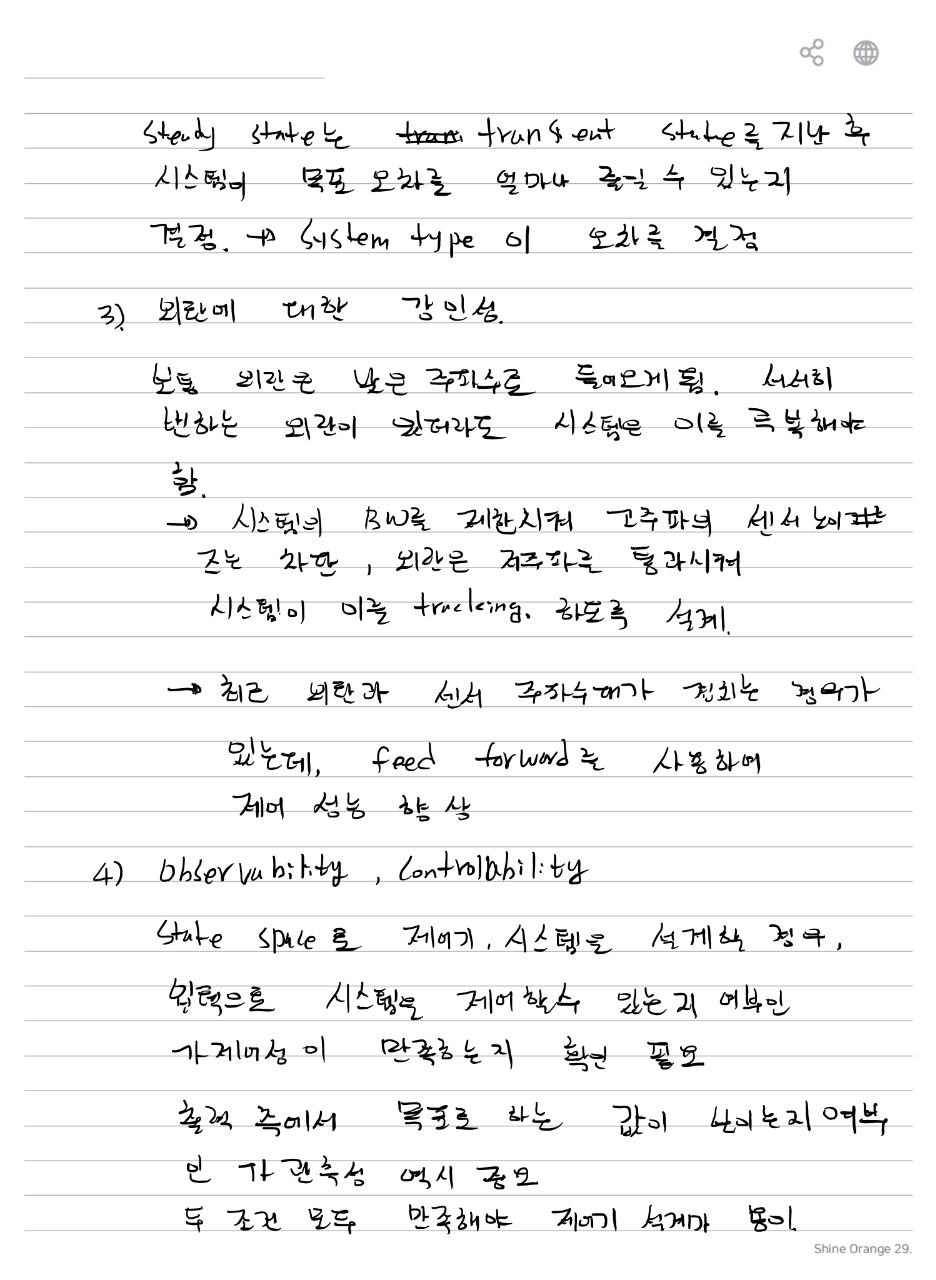 steady state는 transient state를 지난 후
시스템이 목표 오차를 얼마나 줄일 수 있는지
결정. → System type 이 오차를 결정
3) 외란에 대한 강인성.
보통 외란은 낮은 주파수로 들어오게 됨. 서서히
변하는 외란이 있더라도 시스템은 이를 극복해야
함.
→ 시스템의 BW를 제한시켜 고주파의 센서 노이
즈는 차단, 외란은 저주파를 통과시켜
시스템이 이를 tracking. 하도록 설계.
→ 최근 외란과 센서 주파수대가 겹치는 경우가
있는데, feed forward를 사용하여
제어 성능 향상
4) Observability, Controlability
State space로 제어기, 시스템을 설계할 경우,
입력으로 시스템을 제어할수 있는지 여부인
가제어성이 만족하는지 확인 필요
출력 측에서 목표로 하는 값이 보이는지 여부
인 가관측성 역시 중요
두 조건 모두 만족해야 제어기 설계가 용이.
Shine Orange 29.